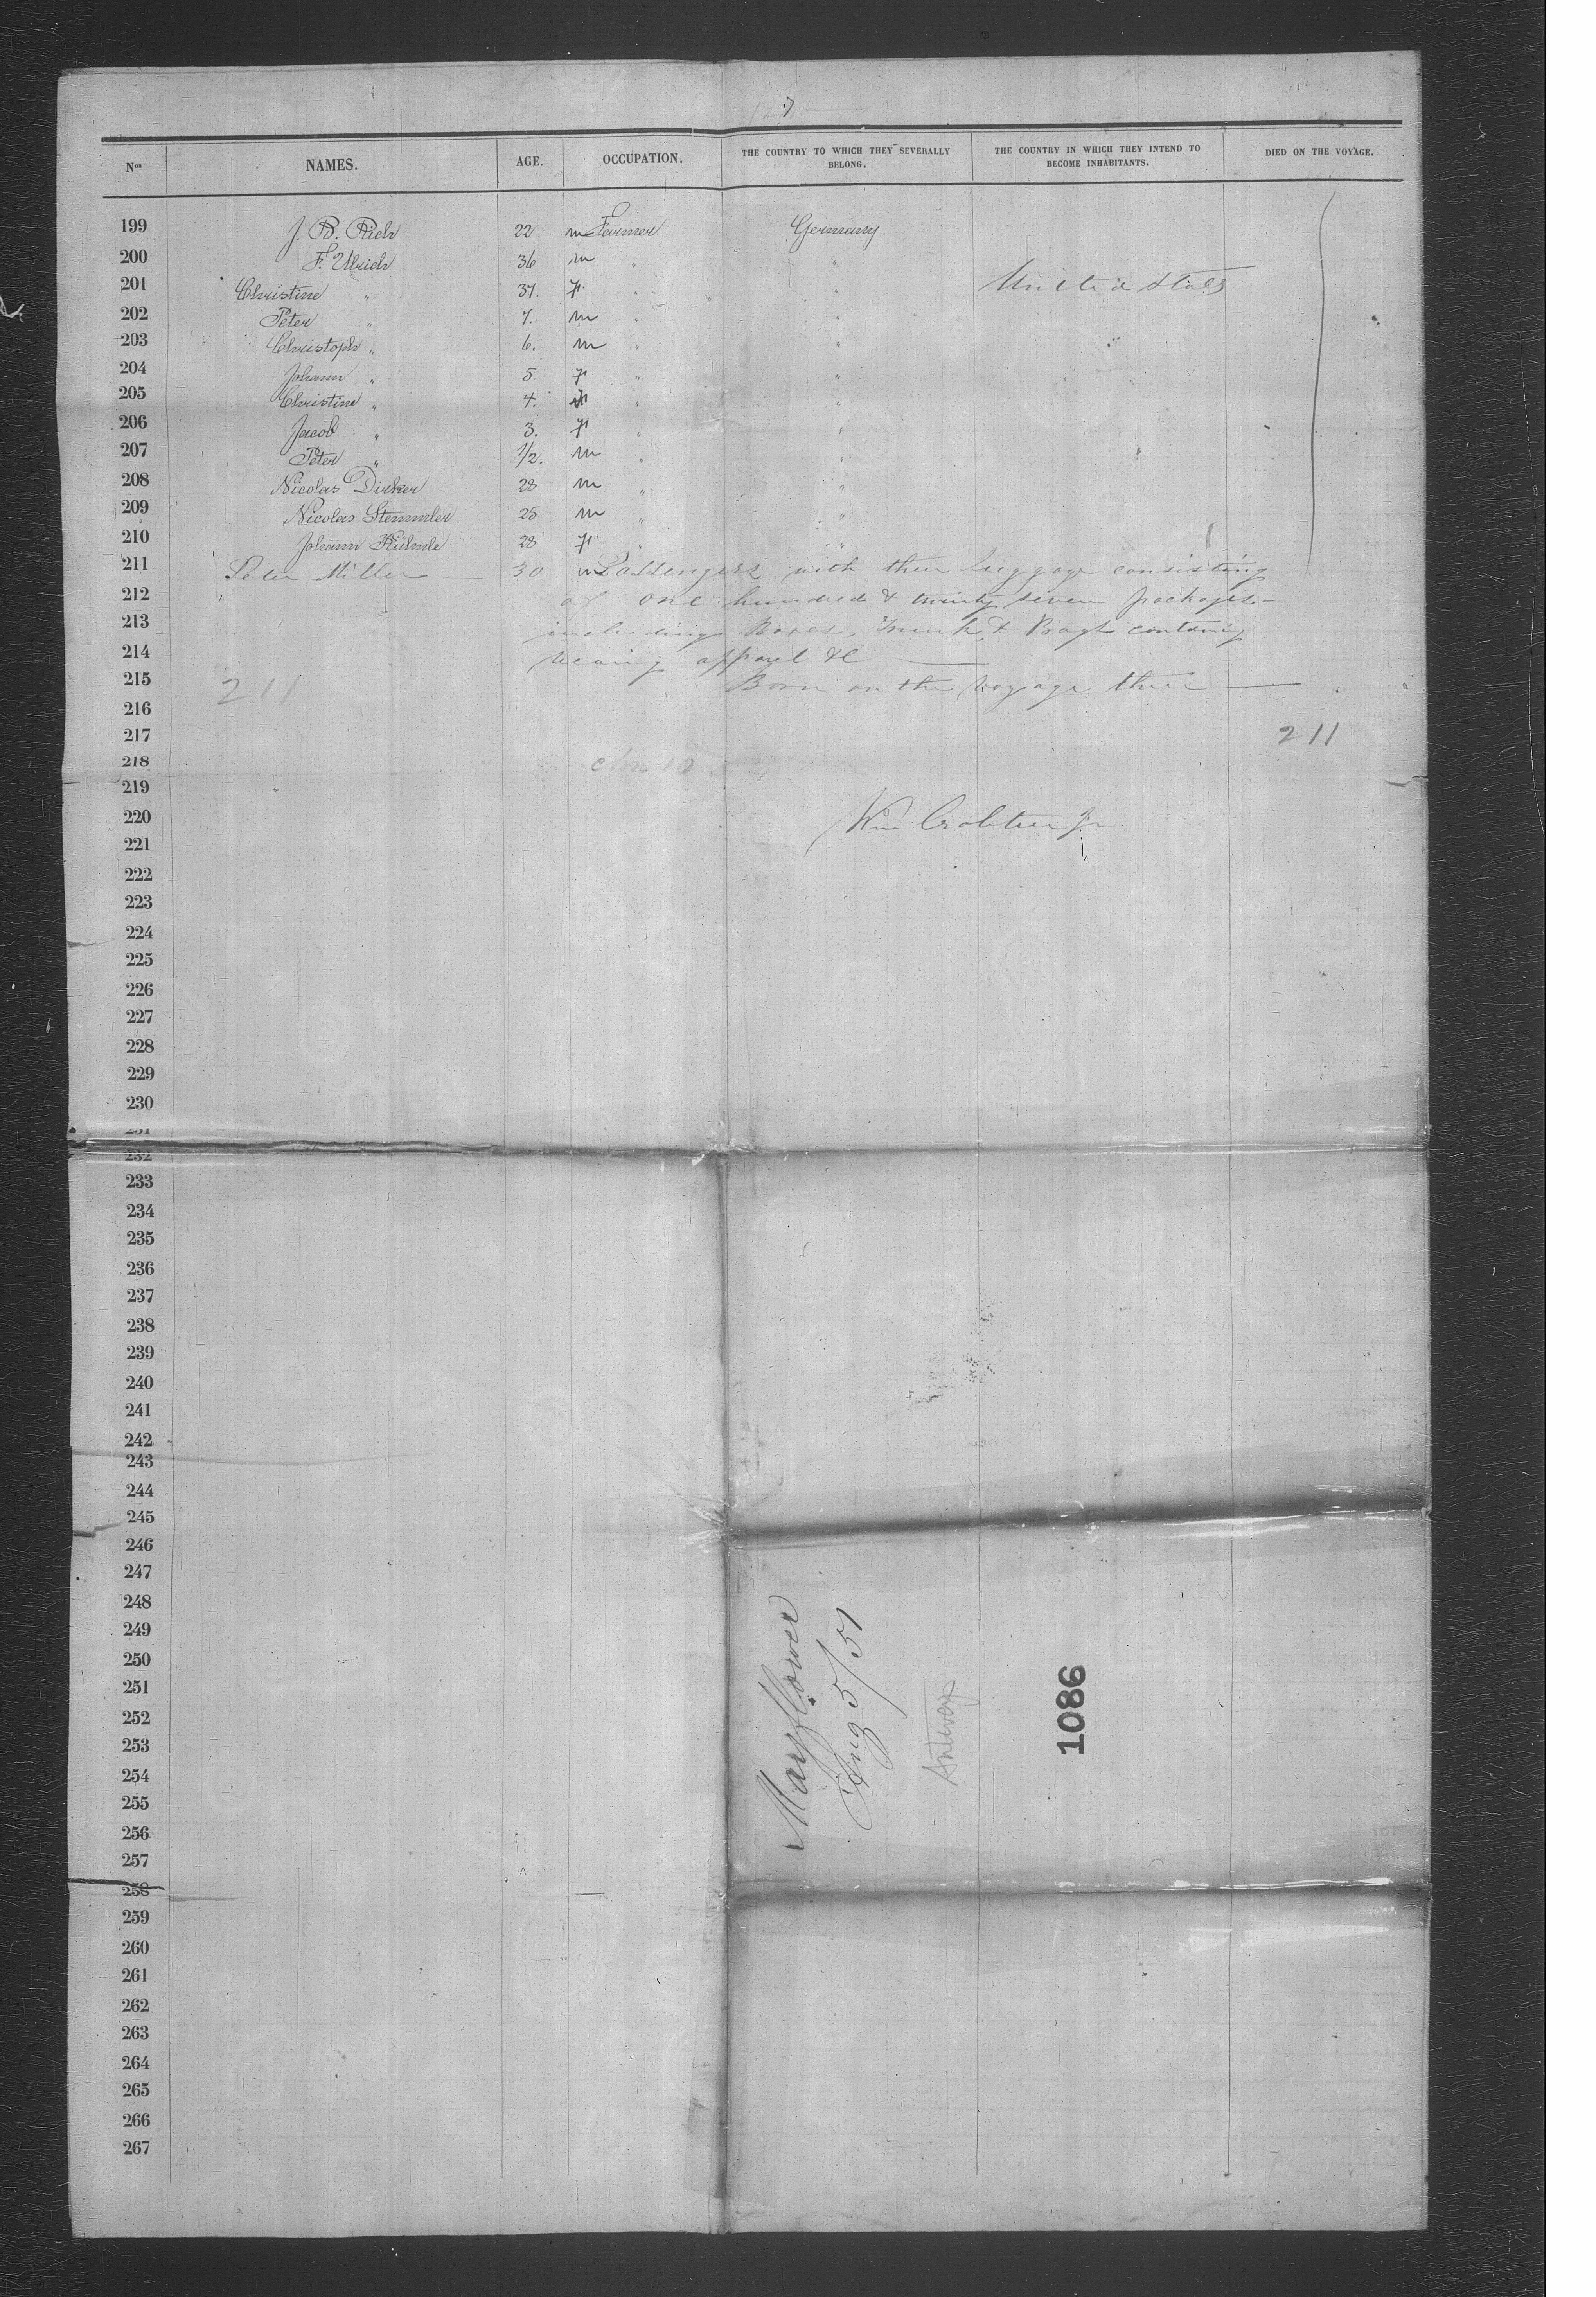 127
Nos NAMES. AGE. OCCUPATION. THE COUNTRY TO WHICH THEY SEVERALLY BELONG. THE COUNTRY IN WHICH THEY INTEND TO BECOME INHABITANTS. DIED ON THE VOYAGE.
199 J. B. Rich 22 m Farmer Germany
200 F. Ulrich 36 m " "
201 Christine " 37. f " " United States
202 Peter " 7. m " "
203 Christoph " 6. m " "
204 Johann " 5. f " "
205 Christine " 4. f " "
206 Jacob " 3. f " "
207 Peter " 1/2. m " "
208 Nicolas Dirker 28 m " "
209 Nicolas Stemmler 25 m " "
210 Johann 28 f " "
211 Peter Miller 30 m Passengers with their luggage consisting
212 of one hundred & twenty seven packages
213 including Boxes, Trunks & Bags containing
214 wearing apparel &c
215 211 Born on the Voyage three
216
217 211
218
219
220 Wm Crabtree Jr
221
222
223
224
225
226
227
228
229
230
231
232
233
234
235
236
237
238
239
240
241
242
243
244
245
246
247
248
249
250
251
252
253
254
255
256
257
258
259
260
261
262
263
264
265
266
267
Mayflower
Aug 5/51
Antwerp
1086